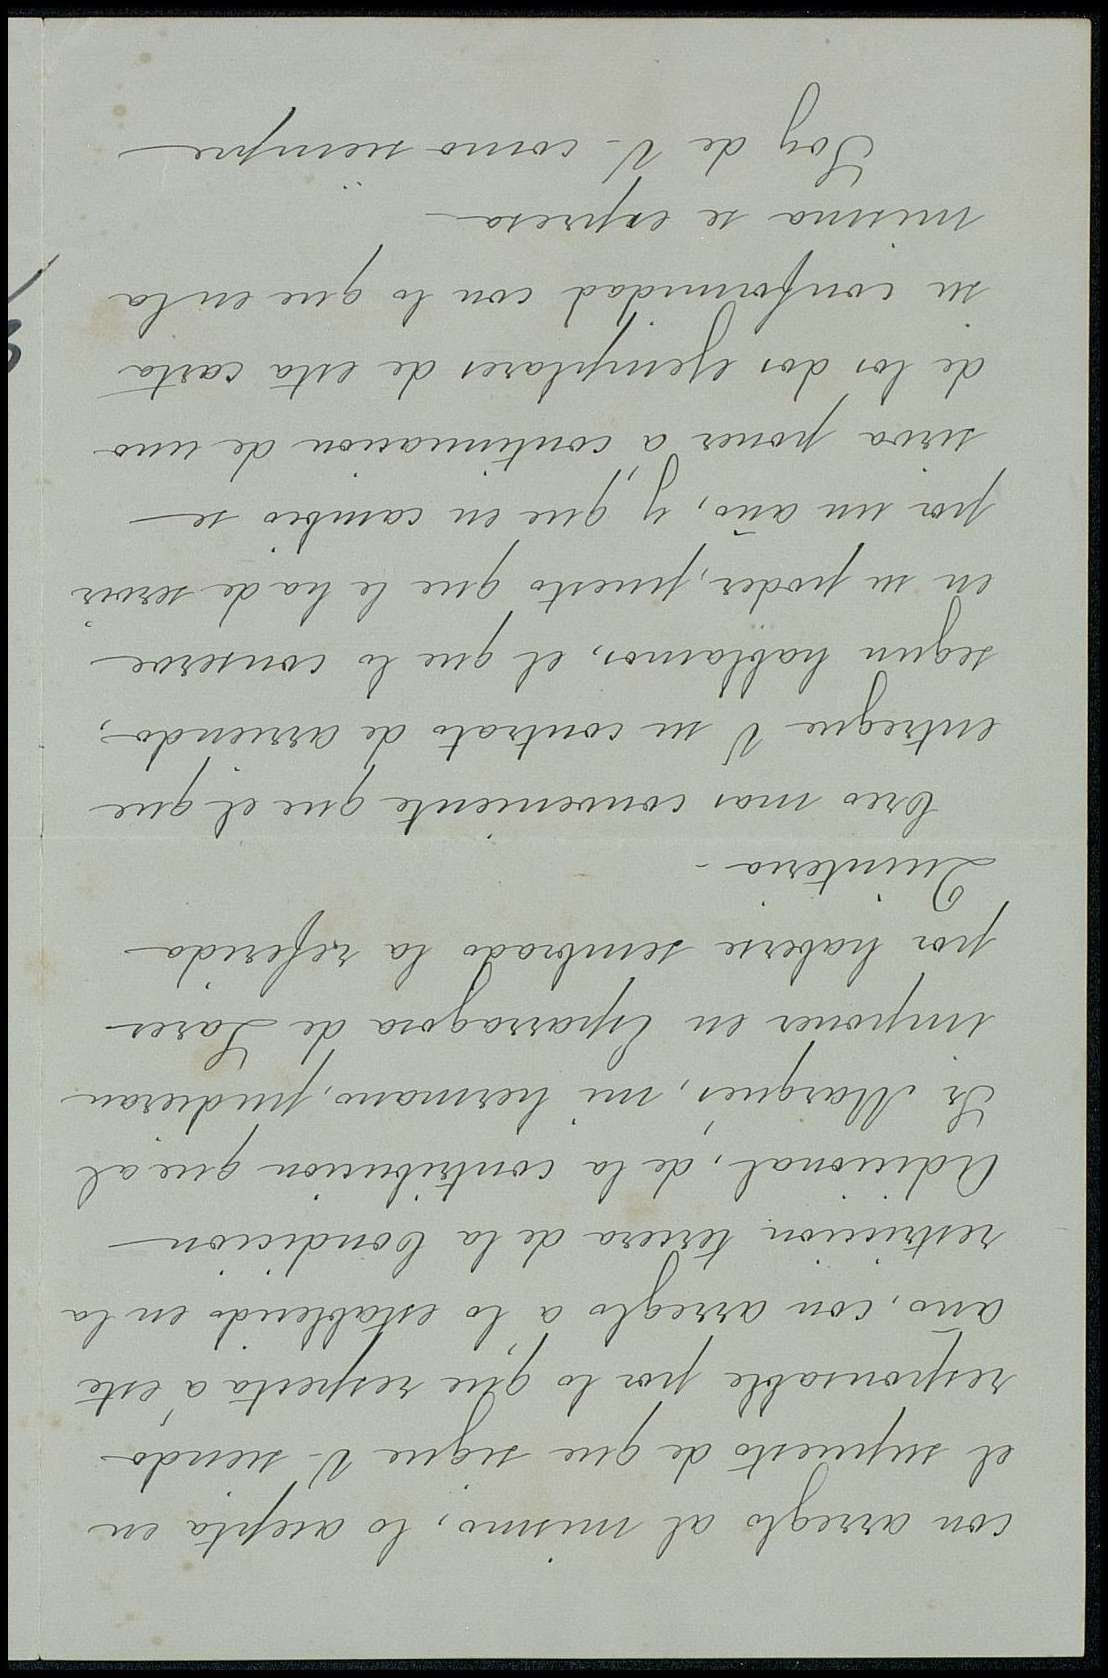 con arreglo al mismo, lo acepta en
el supuesto de que sigue V. siendo
responsable por lo que respecta á este
año, con arreglo a lo establecido en la
restriccion tercera de la Condicion
Adicional, de la contribucion que al
Sr Marqués, mi hermano, pudieran
imponer en Esparragosa de Lares
por haberse sembrado la referida
Quinteria.-
Creo mas conveniente que el que
entregue V su contrato de arriendo,
segun hablamos, el que lo conserve
en su poder, puesto que le ha de servir
por un año, y que en cambio se
sirva poner a continuacion de uno
de los dos ejemplares de esta carta
su conformidad con lo que en la
misma se expresa
Soy de V. como siempre